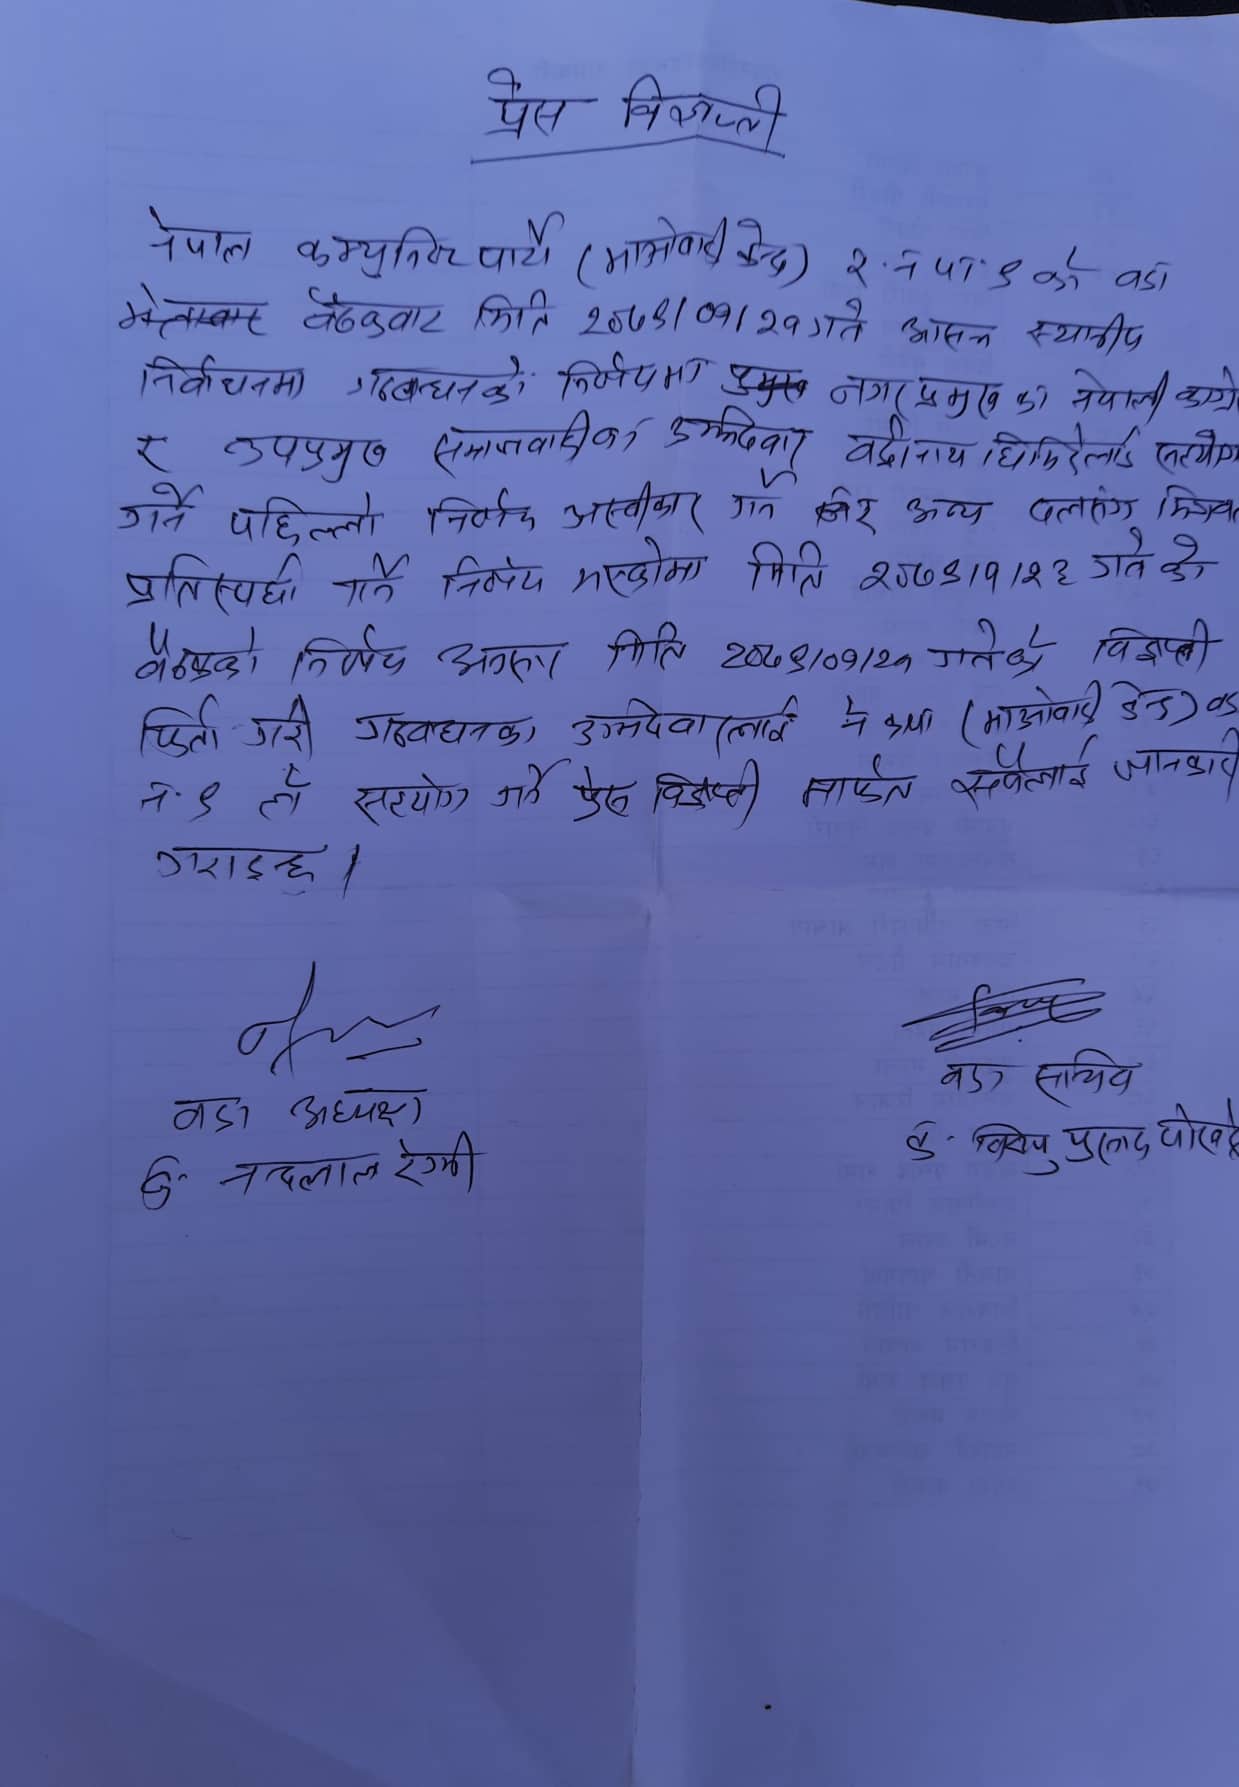 प्रेस विज्ञप्ती
नेपाल कम्युनिष्ट पार्टी (माओवादी केन्द्र) र.न.पा. ९ को वडा
बैठकबाट मिति २०७९/०१/२१ गते आसन्न स्थानीय
निर्वाचनमा गठबन्धनको निर्णयमा नगर प्रमुख का नेपाली
र उपप्रमुख समाजवादीका उम्मेदवार बद्रीनाथ घिमिरेलाई सहयोग
गर्ने पहिल्लो निर्णय अस्वीकार गर्ने अन्य दलसंग
प्रतिस्पर्धा गर्ने निर्णय भएकोमा मिति २०७९/१/२६ गते को
बैठकको निर्णय अनुसार मिति २०७९/०१/२१ गतेको विज्ञप्ती
फिर्ता गरी गठबन्धनका उम्मेदवारलाई ने क पा (माओवादी केन्द्र) वडा
नं. ९ ले सहयोग गर्ने प्रेस विज्ञप्ती मार्फत सबैलाई जानकारी
गराइन्छ।
वडा अध्यक्ष
नन्दलाल रेग्मी
वडा सचिव
विष्णु प्रसाद पोखरेल